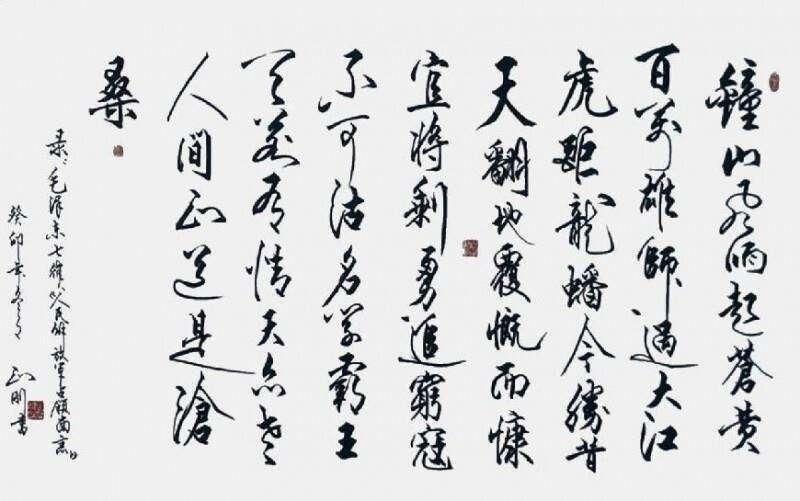 鐘山风雨起蒼黄
百万雄師過大江
虎距龍蟠今勝昔
天翻地覆慨而慷
宜将剩勇追窮寇
不可沽名学霸王
天若有情天亦老
人間正道是滄
桑
录毛泽东七律人民解放军占领南京
癸卯年冬月 書